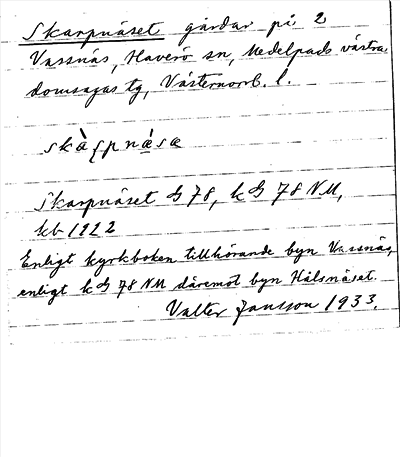 Skarpnäset gårdar på 2
Vassnäs, Haverö sn, Medelpads västra
domsagas tg, Västernorrl. l.
skàrpnásæ
Skarpnäset G 78, k G 78 NM,
kb 1922
Enligt kyrkboken tillhörande byn Vassnäs,
enligt k G 78 NM däremot byn Hålsnäset.
Valter Jansson 1933.